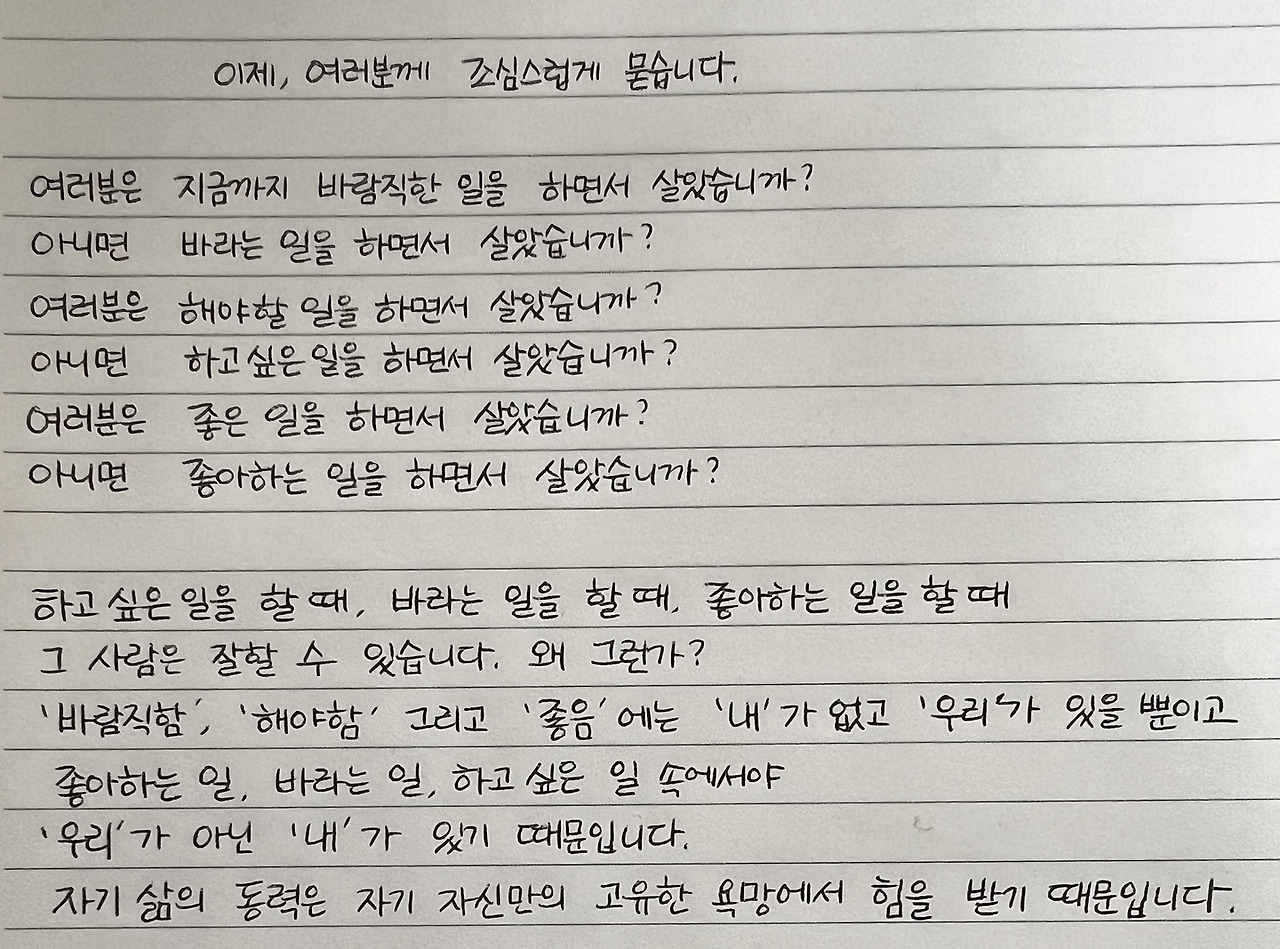 이제, 여러분께 조심스럽게 묻습니다.
여러분은 지금까지 바람직한 일을 하면서 살았습니까?
아니면 바라는 일을 하면서 살았습니까?
여러분은 해야할 일을 하면서 살았습니까?
아니면 하고싶은 일을 하면서 살았습니까?
여러분은 좋은 일을 하면서 살았습니까?
아니면 좋아하는 일을 하면서 살았습니까?
하고 싶은 일을 할 때, 바라는 일을 할 때, 좋아하는 일을 할 때
그 사람은 잘할 수 있습니다. 왜 그런가?
'바람직함', '해야함' 그리고 '좋음'에는 '내'가 없고 '우리'가 있을 뿐이고
좋아하는 일, 바라는 일, 하고 싶은 일 속에서야
'우리'가 아닌 '내'가 있기 때문입니다.
자기 삶의 동력은 자기 자신만의 고유한 욕망에서 힘을 받기 때문입니다.